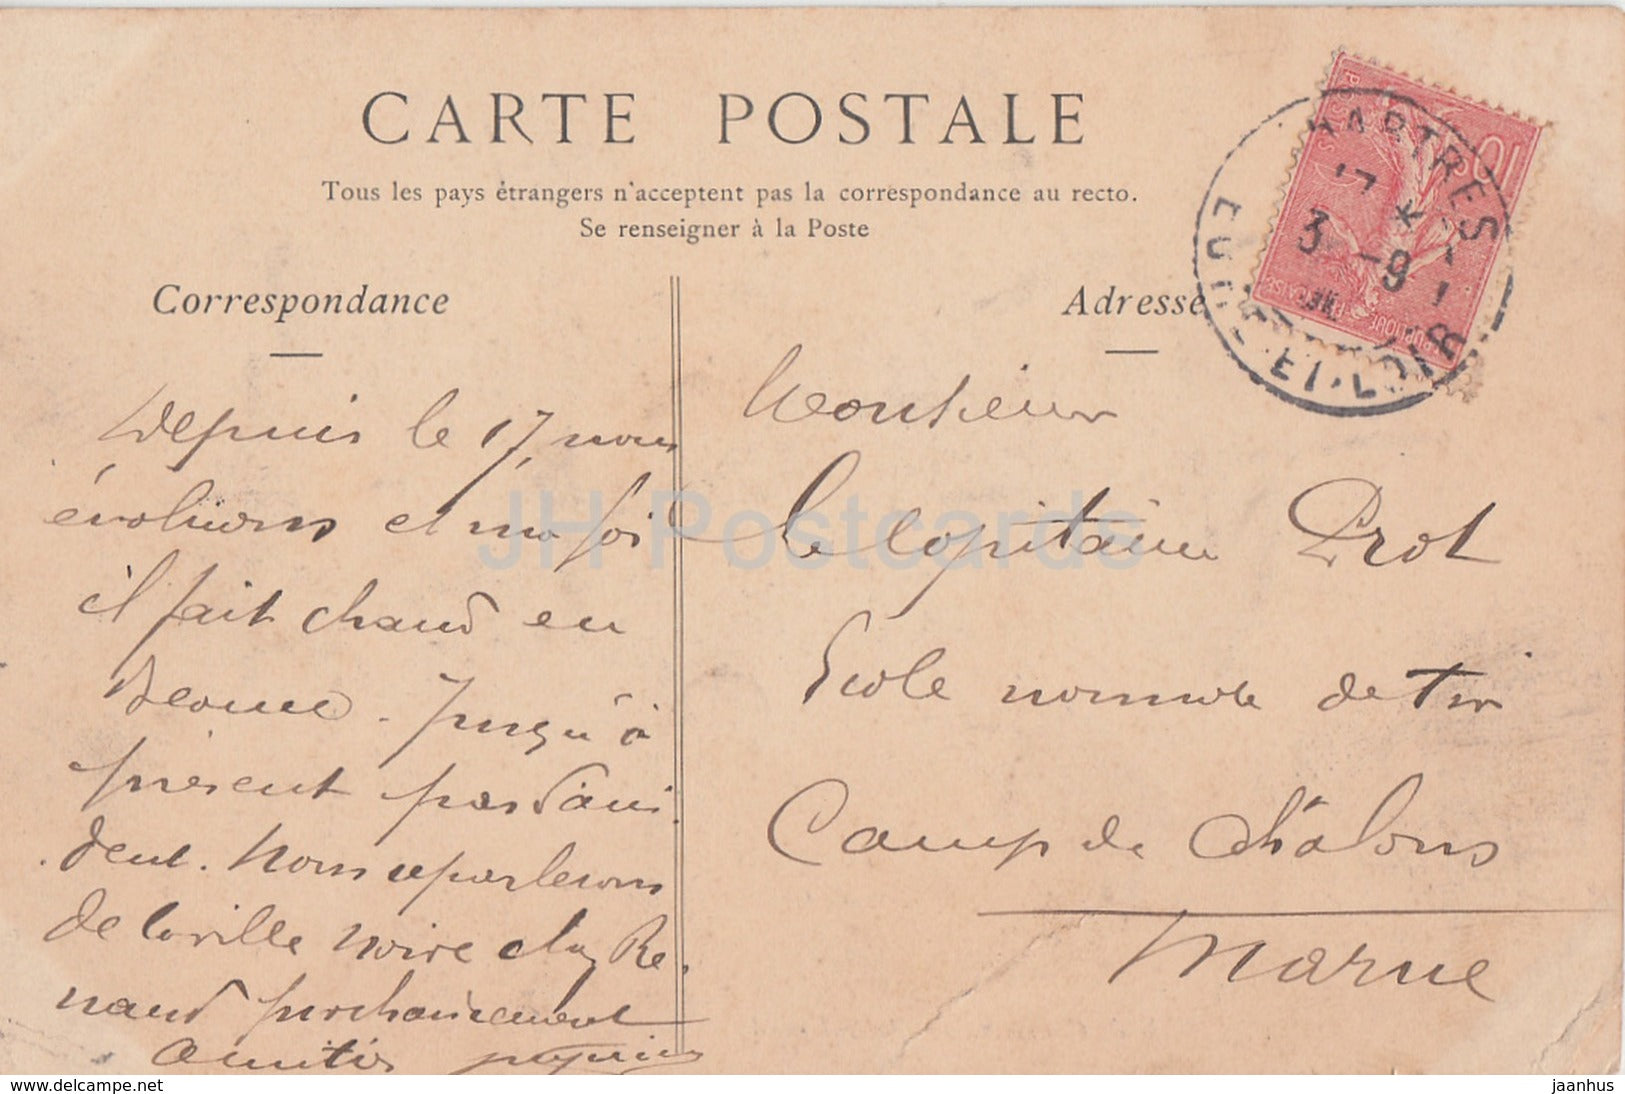 CARTE POSTALE
Tous les pays étrangers n'acceptent pas la correspondance au recto.
Se renseigner à la Poste
Correspondance
Depuis le 17, nous
évoluons et ma foi
il fait chaud en
Beauce. Jusqu'à
présent pas d'acci
dent. Nous reparlerons
de la ville noire chez Re
naud prochainement
Amitiés
Adresse
Monsieur
le Capitaine Prot
Ecole normale de Tir
Camp de Châlons
Marne
CHARTRES
17 *
3 -9
EURE-ET-LOIR
10
POSTES
REPUBLIQUE FRANÇAISE
JH Postcards
delcampe.net
jaanhus